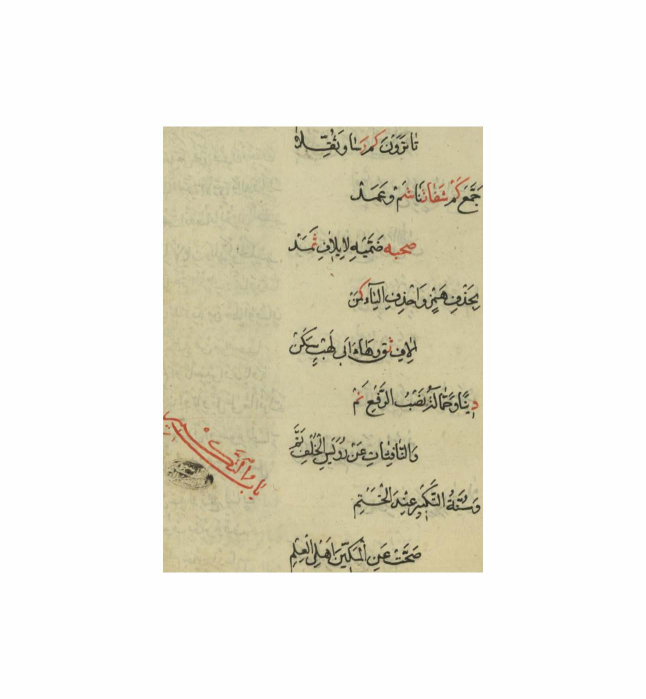 تَا تَرَوُنَّ كَمْ رَسَا وَثَقِّلَا
جَمَّعَ كَمْ شَفَا ثَنَا شِمْ وَعَمَدْ
صحبه ضَمَّيْهِ لِايلَافِ ثَمَدْ
بِحَذْفِ هَمْزٍ وَاحْذِفِ اليَاءَ كَمَنْ
اِلَافِ ثِقْ وَهَا اَبِى لَهَبٍ سَكَنْ
دِينًا وَحَمَّالَةُ نَصْبُ الرَّفْعِ نَمْ
وَالنَّافِثَاتِ عَنْ رُوَيْسِ الْخُلْفِ تَمْ
وَسُنَّةُ التَّكْبِيرِ عِنْدَ الْخَتْمِ
صَحَّتْ عَنِ الْمَكِّينَ اَهْلِ الْعِلْمِ
باب التكبير